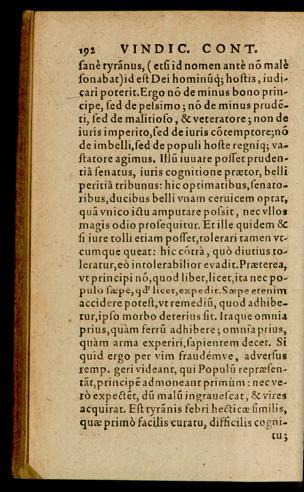 192 VINDIC. CONT.
sanè tyrãnus, (etsi id nomen antè nõ malè
sonabat) id est Dei hominúq; hostis, iudi-
cari poterit. Ergo nõ de minus bono prin-
cipe, sed de pessimo; nõ de minus prudẽ-
ti, sed de malitioso, & veteratore; non de
iuris imperito, sed de iuris cõtemptore; nõ
de imbelli, sed de populi hoste regníq; va-
statore agimus. Illũ iuuare posset pruden-
tiâ senatus, iuris cognitione prætor, belli
peritiâ tribunus: hic optimatibus, senato-
ribus, ducibus belli vnam ceruicem optat,
quã vnico ictu amputare possit, nec vllos
magis odio prosequitur. Et ille quidem &
si iure tolli etiam posset, tolerari tamen vt-
cumque queat: hic cõtrà, quò diutius to-
leratur, eò intolerabilior evadit. Præterea,
vt principi nõ, quod liber, licet, ita nec po-
pulo sæpe, qd' licet, expedit. Sæpe etenim
accidere potest, vt remediũ, quod adhibe-
tur, ipso morbo deterius sit. Itaque omnia
prius, quàm ferrũ adhibere; omnia prius,
quàm arma experiri, sapientem decet. Si
quid ergo per vim fraudémve, adversus
remp. geri videant, qui Populũ repræsen-
tãt, principẽ admoneant primùm: nec ve-
rò expectẽt, dũ malũ ingrauescat, & vires
acquirat. Est tyrãnis febri hecticæ similis,
quæ primò facilis curatu, difficilis cogni-
tu;